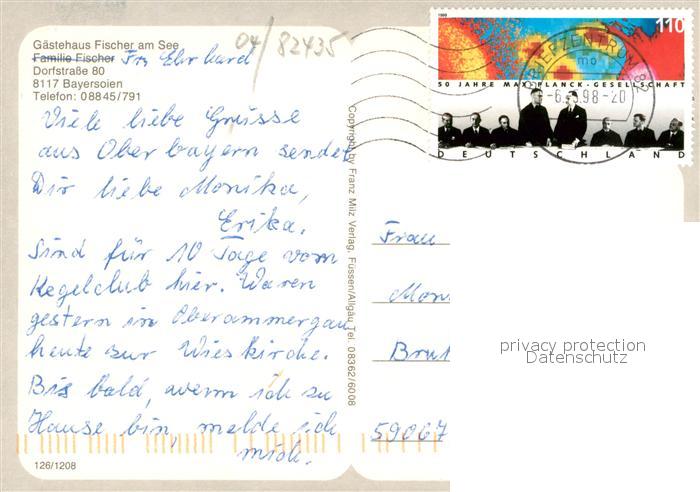 Gästehaus Fischer am See
Familie Fischer Frz Ehrhard
Dorfstraße 80
8117 Bayersoien
Telefon: 08845/791
04/82435
Viele liebe Grüsse
aus Oberbayern sendet
Dir liebe Monika,
Erika.
Sind für 10 Tage vom
Kegelclub hier. Waren
gestern in Oberammergau
heute zur Wieskirche.
Bis bald, wenn ich zu
Hause bin, melde ich
mich.
126/1208
Copyright by Franz Milz Verlag, Füssen/Allgäu Tel. 08362/6008
1998
110
50 JAHRE MAX-PLANCK-GESELLSCHAFT
DEUTSCHLAND
BRIEFZENTRUM 82
mo
98-20
Frau
Moni
Bru
59067
privacy protection
Datenschutz